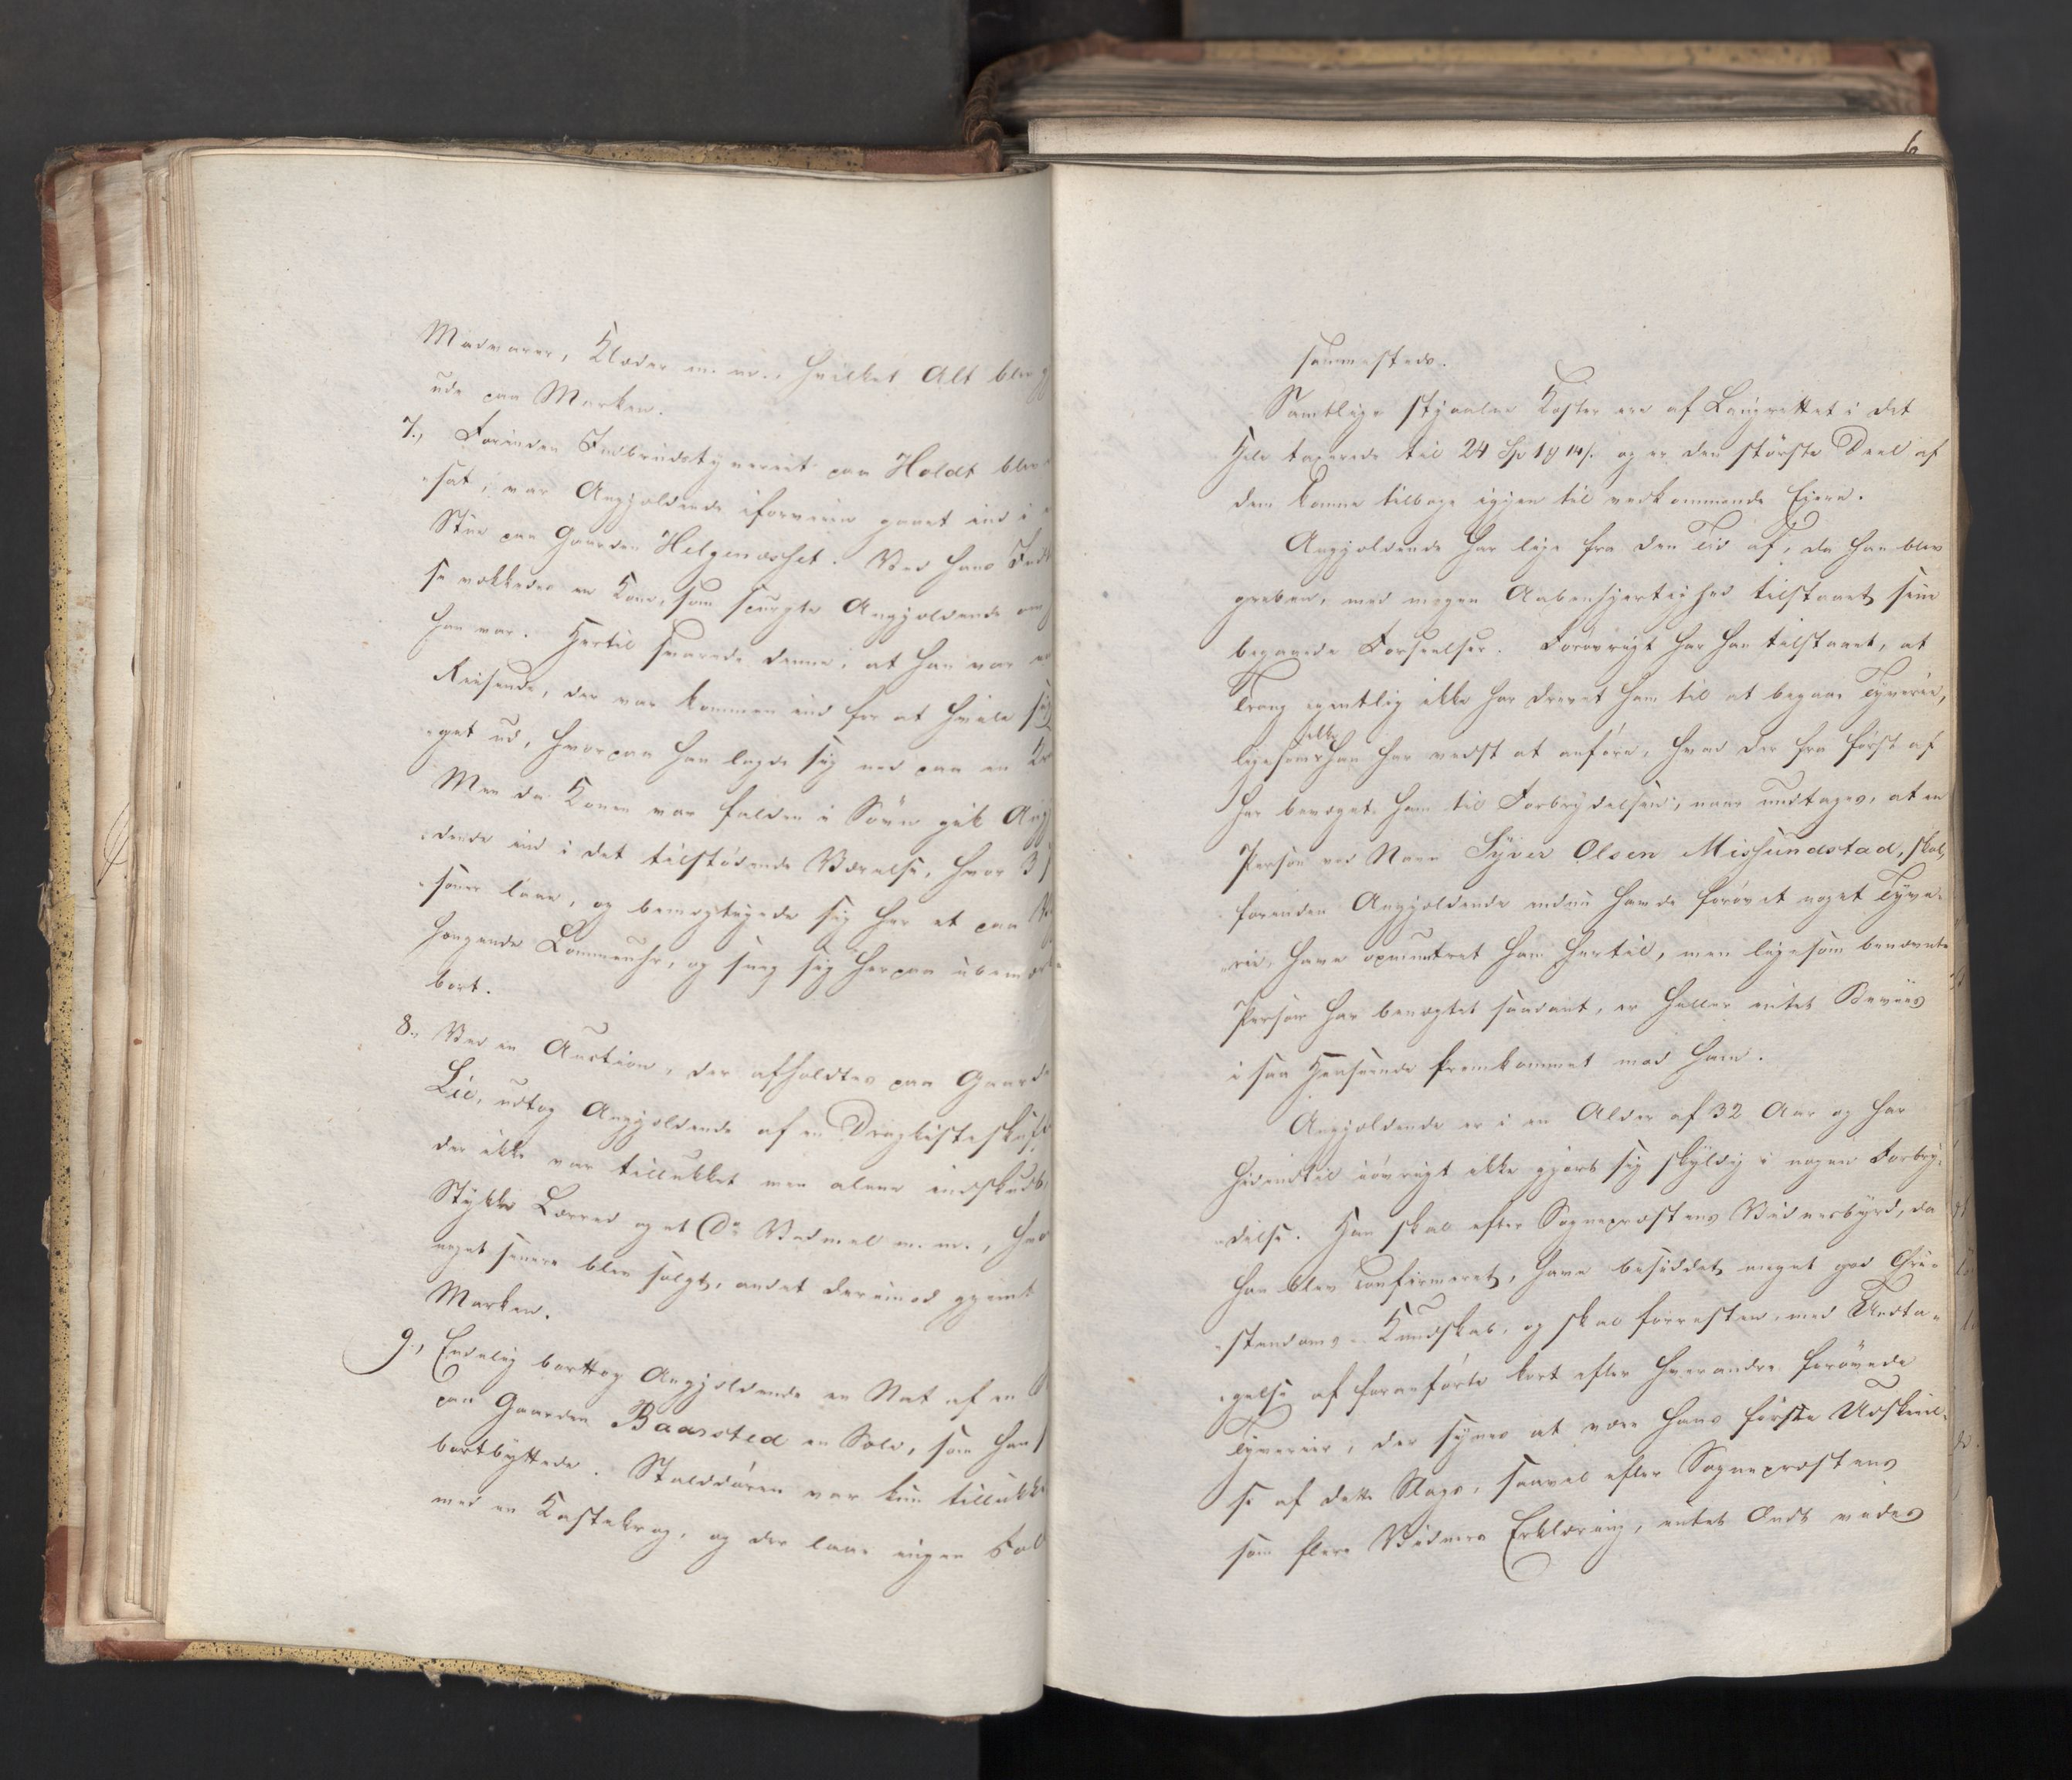 Madvarer, Klæder m. m., hvilket Alt blev
ude paa Marken.
7., Forinden Indbrudstyveriet paa Holdt blev
„sat, var Angjældende iforveien gaaet ind i
Stue paa Gaarden Helgenæshet. Ved hans
se vækkedes en Kone, som spurgte Angjældende om
han var. Hertil svarede denne, at han var en
Reisende, der var kommen ind for at hvile sig
„get ud, hvorpaa han lagde sig ned paa en
Men da Konen var falden i Søvn gik Ang
„dende ind i det tilstødende Værelse, hvor 3
„soner laae, og bemægtigede sig her et paa
hængende Lommeuhr, og sneg sig herpaa ubemær
bort.
8., Ved en Auction, der afholdtes paa Gaard
Lie, udtog Angjældende af en Dragkisteskuffe
der ikke var tillukket men alene indskudt,
Stykke Lærred og et Do Vadmel m. m.,
noget senere blev solgt, andet derimod gjemt
Marken.
9., Endelig borttog Angjældende en Nat af en
paa Gaarden Baarsted en Sele, som han
bortbyttede. Stalddøren var kun tillukke
med en Kastekrog, og der laae ingen Fol
6
sammesteds.
Samtlige stjaalne Koster ere af Laugrettet i det
Hele taxerede til 24 Sp 1 14 s. og er den største Deel af
dem komne tilbage igjen til vedkommende Eiere.
Angjældende har lige fra den Tid af, da han blev
greben, med megen Aabenhjertighed tilstaaet sine
begaaede Forseelser. Forøvrigt har han tilstaaet, at
Trang egentlig ikke har drevet ham til at begaae Tyverie,
ikke
ligesom han har vidst at anføre, hvad der fra først af
har bevæget ham til Forbrydelsen, naar undtages, at en
Person ved Navn Syver Olsen Missundstad, skal,
forinden Angjældende endnu havde forøvet noget Tyve„
„rie, have opmuntret ham hertil, men ligesom benævnte
Person har benægtet saadant, er heller intet Beviis
i saa Henseende fremkommet mod ham.
Angjældende er i en Alder af 32 Aar og har
hidindtil iøvrigt ikke gjort sig skyldig i nogen Forbry„
„delse. Han skal efter Sognepræstens Vidnesbyrd, da
han blev confirmeret, have besiddet meget god Chri„
„stendoms-Kundskab, og skal forresten, med Undta„
„gelse af foranførte kort efter hverandre forøvede
Tyverier, der synes at være hans første Udskeiel„
se af dette Slags, saavel efter Sognepræstens
som flere Vidners Erklæring, intet Ondt vides